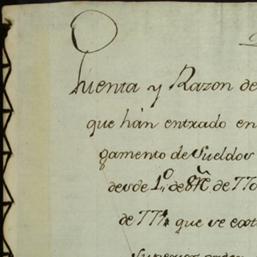 Cuenta y Razon de
que hán entrado en
gamento de Sueldos
desde 1º de 8re de 77
de 77 que se ext